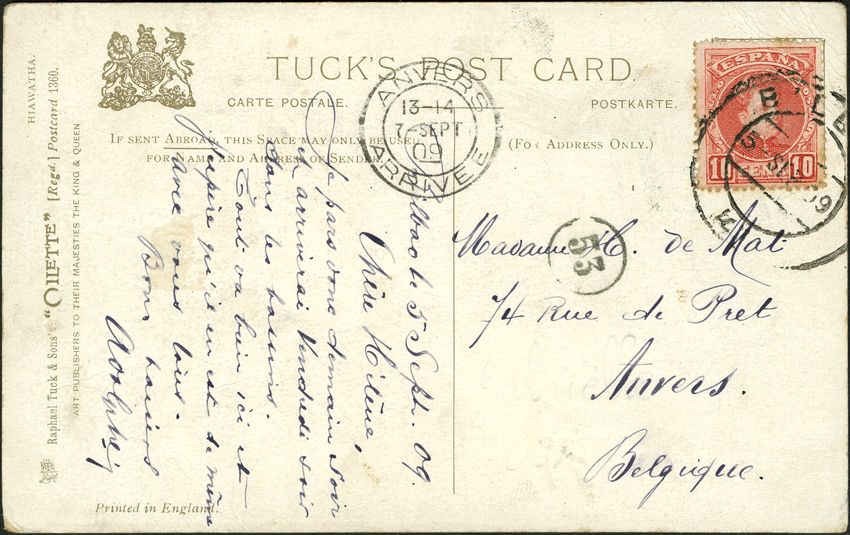 TUCK'S POST CARD.
CARTE POSTALE.
POSTKARTE.
IF SENT ABROAD, THIS SPACE MAY ONLY BE USED
FOR NAME AND ADDRESS OF SENDER.
(FOR ADDRESS ONLY.)
HIAWATHA.
Raphael Tuck & Sons' "OILETTE" [Regd.] Postcard 1360.
ART PUBLISHERS TO THEIR MAJESTIES THE KING & QUEEN
Printed in England.
ANVERS
13-14
7-SEPT
09
ARRIVÉE
ESPAÑA
10 CENT 10
5 SEP 09
53
Bilbao le 5 Sept. 09.
Chère Hélène,
Je pars donc demain soir
et arriverai Vendredi soir
dans les bassins.
Tout va bien ici et
j'espère qu'il en est de même
avec vous tous.
Bons baisers
Adolphe
Madame H. de Mat
74 Rue de Pret
Anvers.
Belgique.